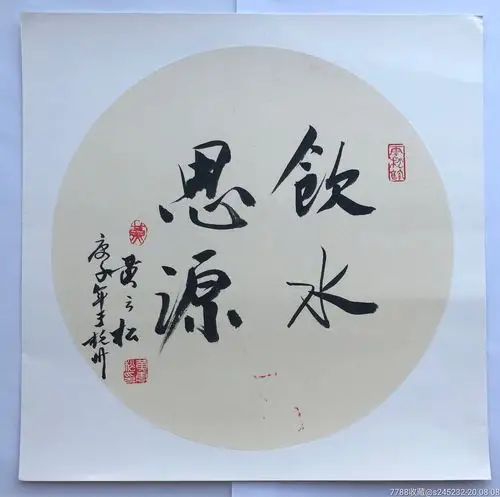 飲水
思源
黄云松
庚子年于杭州
7788收藏@s245232-20.08.08